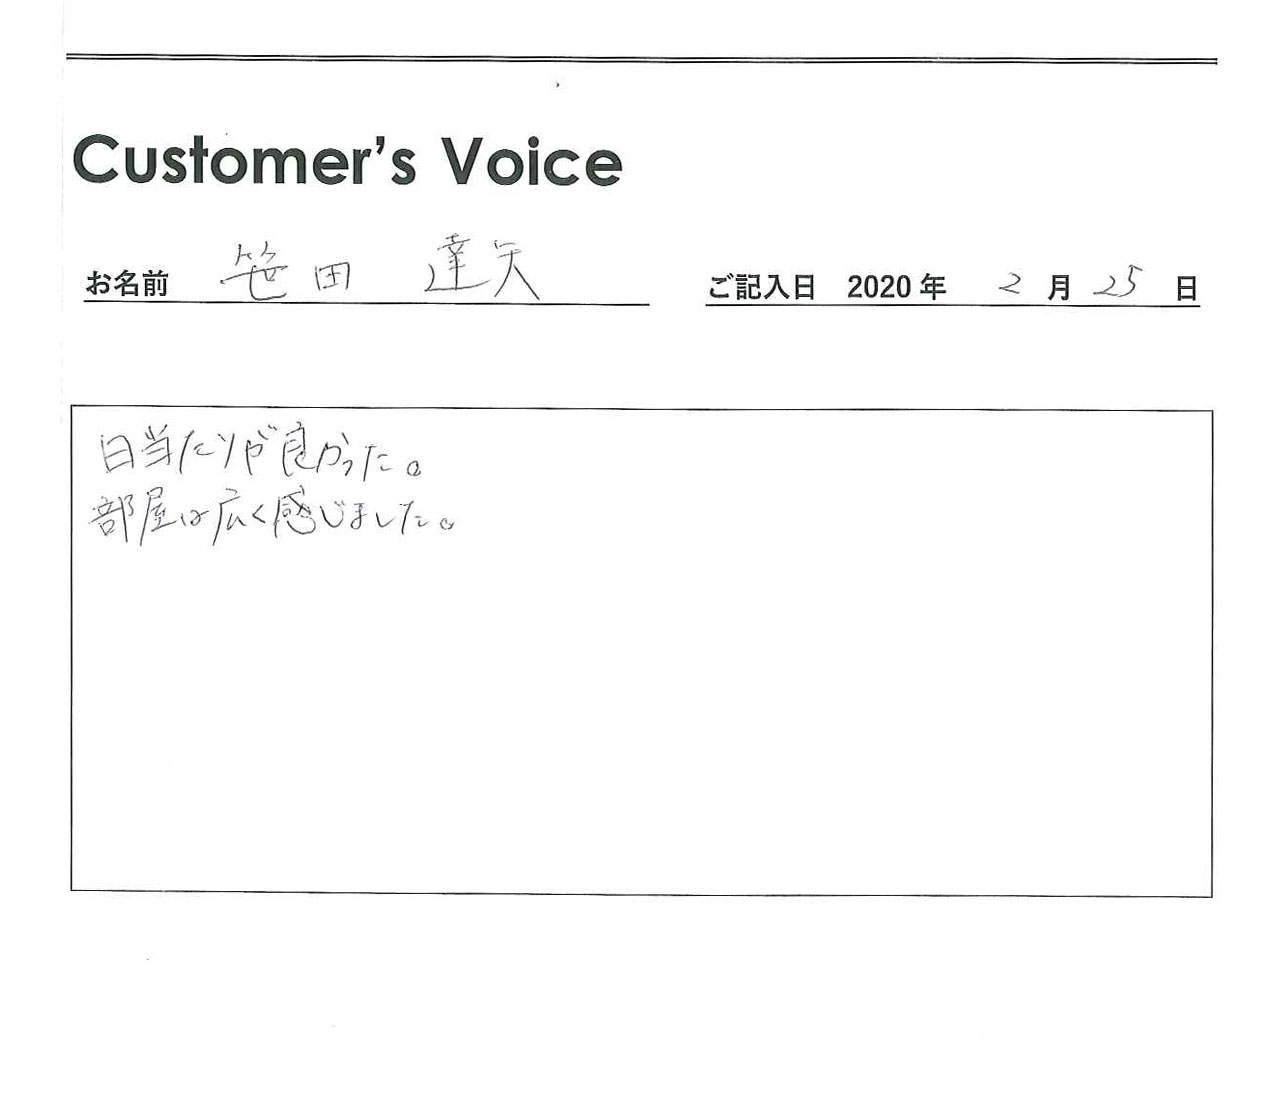 Customer's Voice
お名前 笹田 達矢 ご記入日 2020年 2月25日
日当たりが良かった。
部屋は広く感じました。